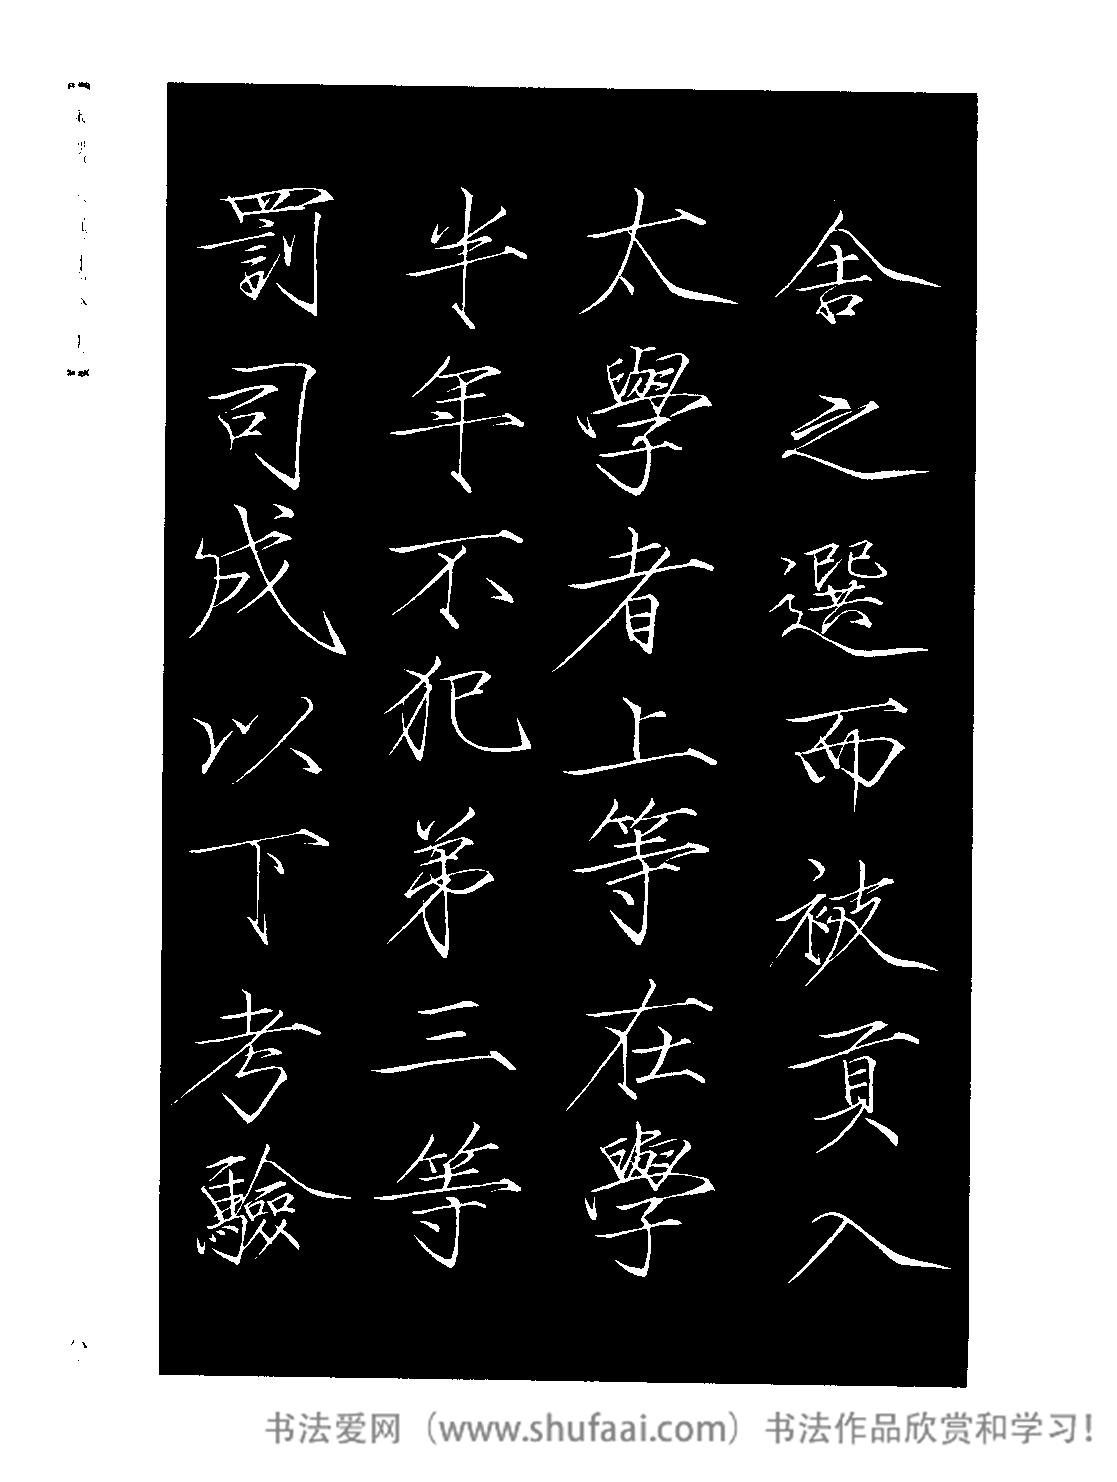 舍之選而被貢入
太學者上等在學
半年不犯弟三等
罰司成以下考驗
书法爱网（www.shufaai.com）书法作品欣赏和学习！